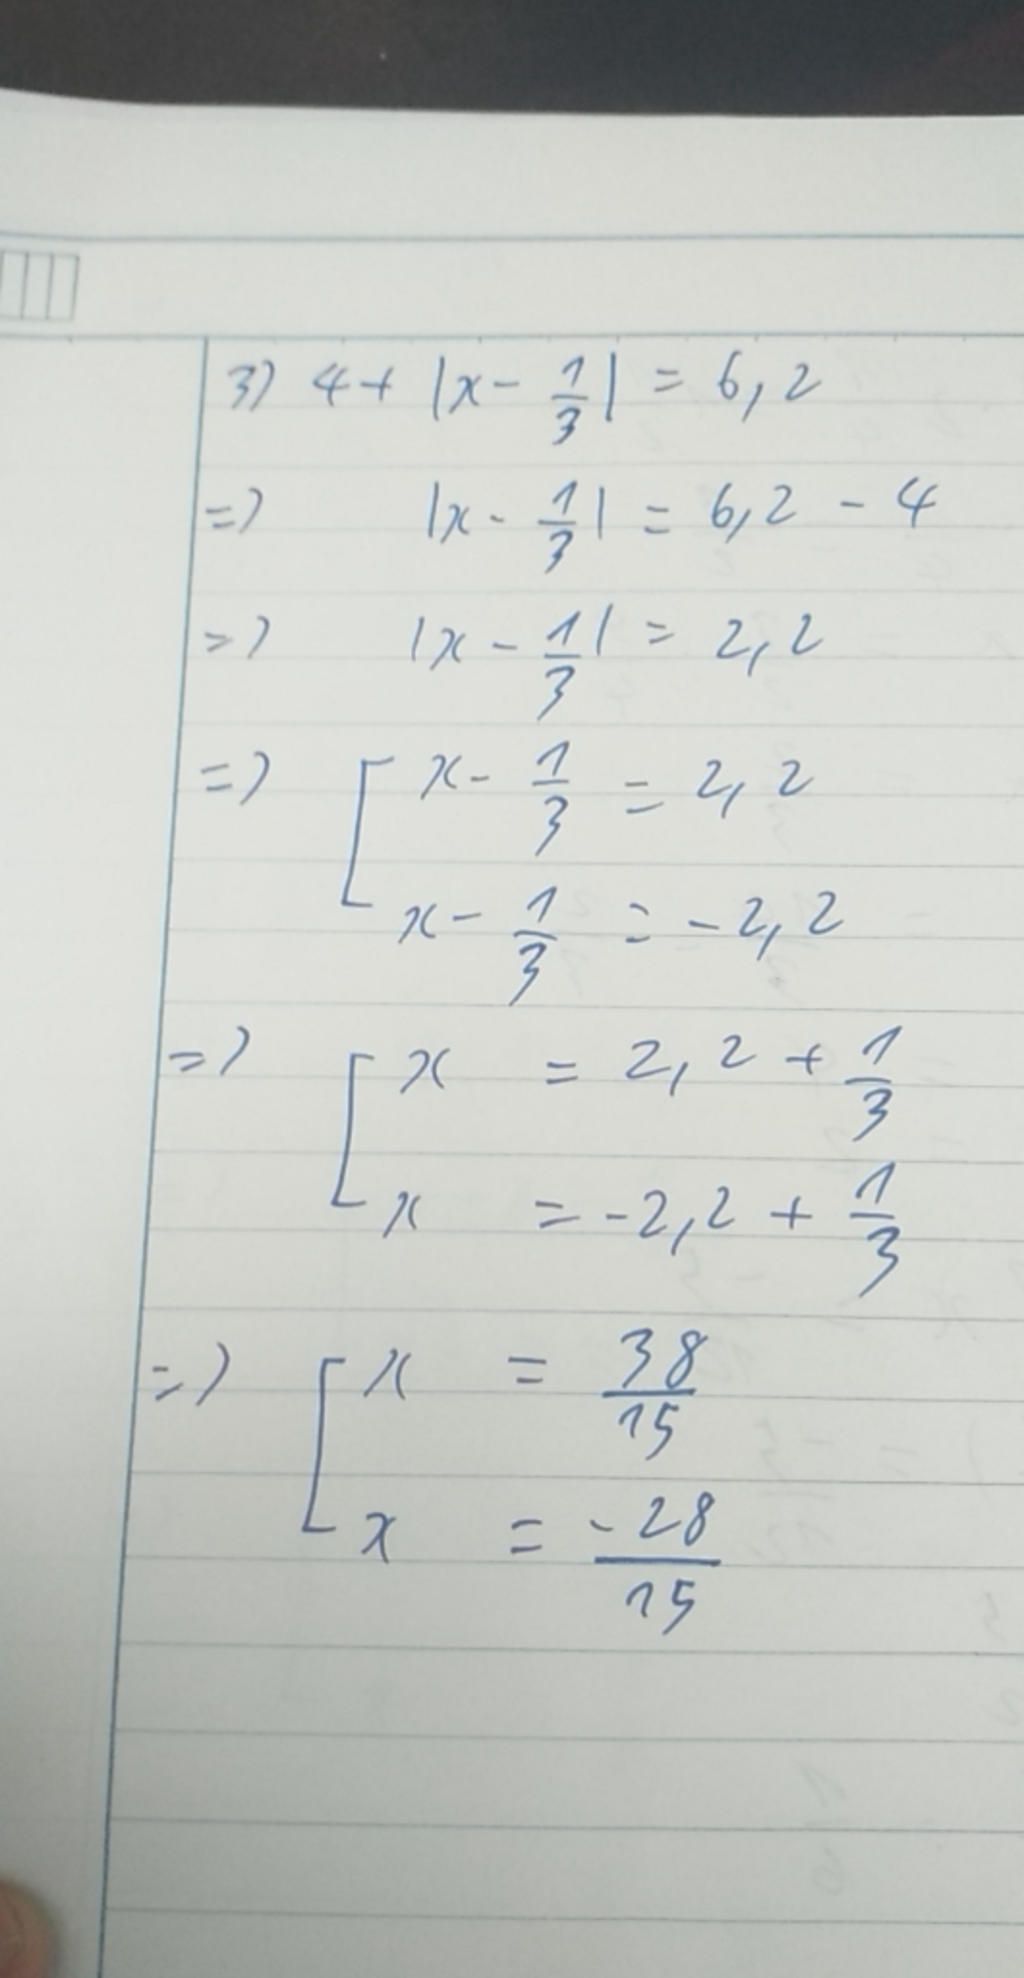 3) 4 + |x - 1/3| = 6,2
=> |x - 1/3| = 6,2 - 4
=> |x - 1/3| = 2,2
=> [ x - 1/3 = 2,2
x - 1/3 = -2,2
=> [ x = 2,2 + 1/3
x = -2,2 + 1/3
=> [ x = 38/15
x = -28/15